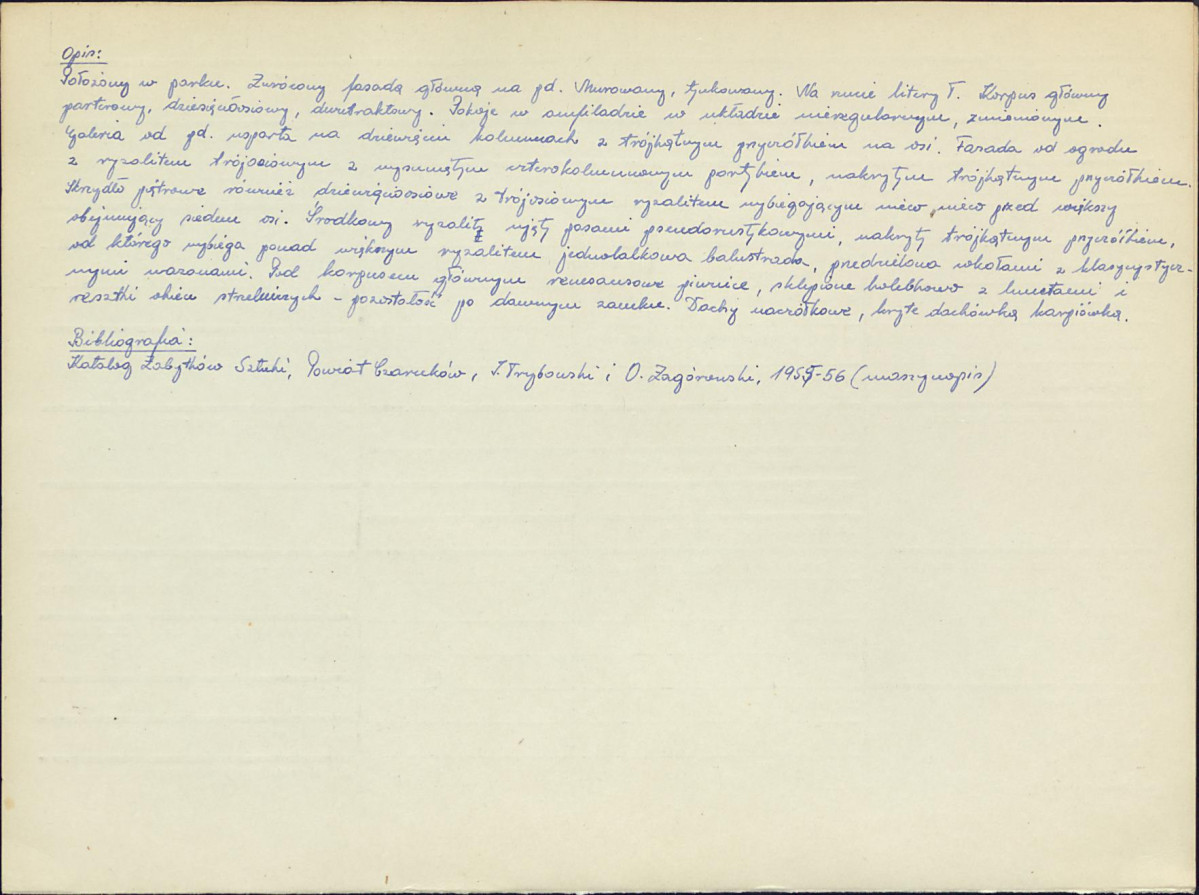 Opis:
Położony w parku. Zwrócony fasadą główną na pd. Murowany, tynkowany. Na rzucie litery T. Korpus główny
parterowy, dziesięcioosiowy, dwutraktowy. Pokoje w amfiladzie w układzie nieregularnym, zmienionym.
Galeria od pd. wsparta na dziewięciu kolumnach z trójkątnym przyczółkiem na osi. Fasada od ogrodu
z ryzalitem trójosiowym z wysuniętym czterokolumnowym portykiem, nakrytym trójkątnym przyczółkiem.
Skrzydło piętrowe również dziewięcioosiowe z trójosiowym ryzalitem wybiegającym nieco nieco przed większy
obejmujący siedem osi. Środkowy ryzalit ujęty pasami pseudorustykowymi, nakryty trójkątnym przyczółkiem,
od którego wybiega ponad większym ryzalitem jednolalkowa balustrada, przedzielona cokołami z klasycystycz-
nymi wazonami. Pod korpusem głównym renesansowe piwnice, sklepione kolebkowo z lunetami i
resztki okien strzelniczych - pozostałość po dawnym zamku. Dachy naczółkowe, kryte dachówką karpiówką.
Bibliografia:
Katalog Zabytków Sztuki, Powiat Czarnków, J. Frybowski i O. Zagórowski, 1955-56 (maszynopis)